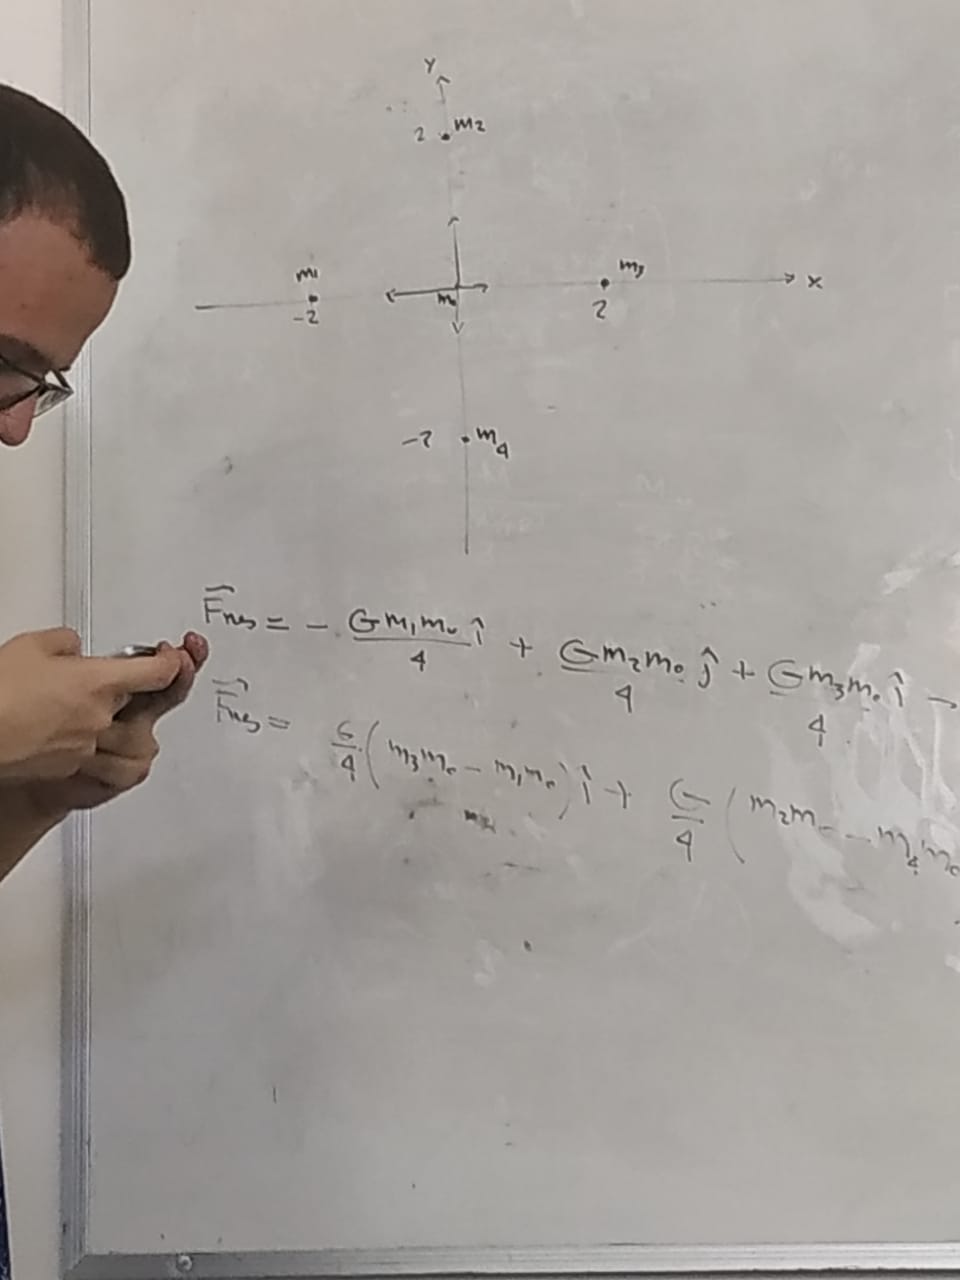 Y
2 m2
m1
m3
x
m0
-2
2
-2 m4
F⃗nes = - Gm1m0/4 î + Gm2m0/4 ĵ + Gm3m0/4 î -
F⃗nes = G/4 (m3m0 - m1m0) î + G/4 (m2m0 - m4m0